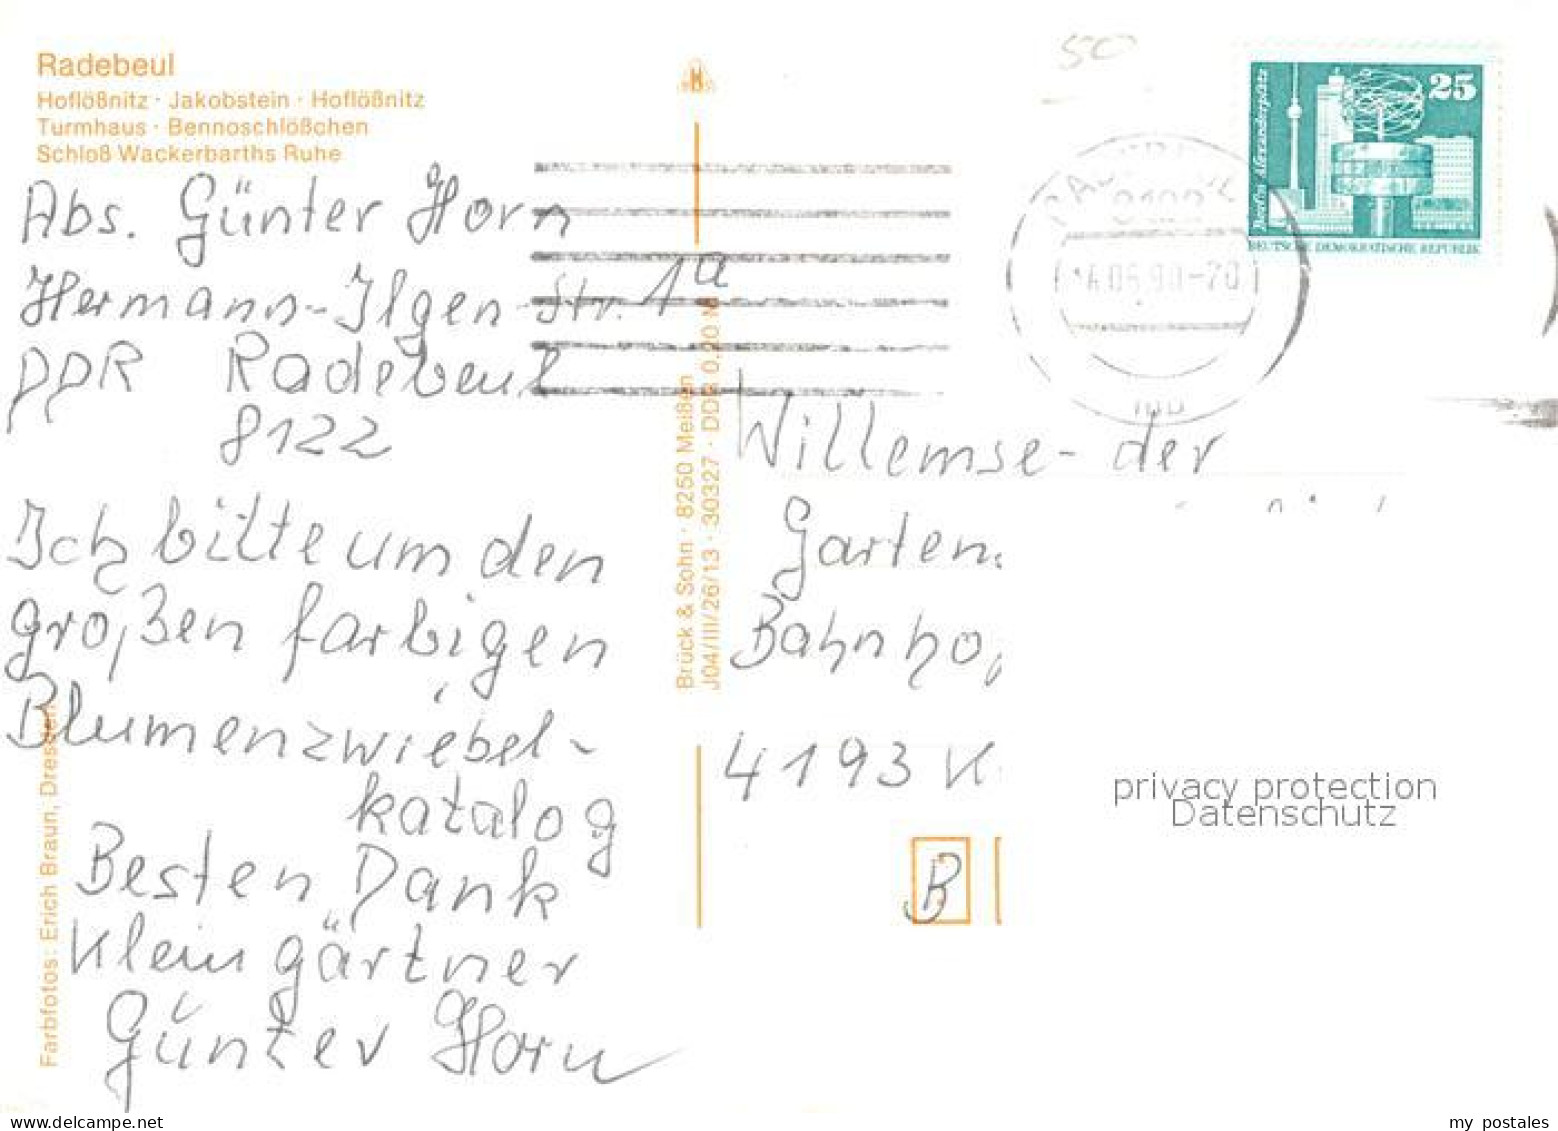 Radebeul
Hoflößnitz · Jakobstein · Hoflößnitz
Turmhaus · Bennoschlößchen
Schloß Wackerbarths Ruhe
Abs. Günter Horn
Hermann-Ilgen-Str. 1a
DDR Radebeul
8122
Ich bitte um den
großen farbigen
Blumenzwiebel-
katalog
Besten Dank
Kleingärtner
Günter Horn
Farbfotos: Erich Braun, Dresden
Brück & Sohn · 8250 Meißen
J04/III/26/13 · 30327 · DDR 0,20 M
25
Berlin, Alexanderplatz
DEUTSCHE DEMOKRATISCHE REPUBLIK
Willemse - der
Garten
Bahnho
4193 K
B
privacy protection
Datenschutz
my postales